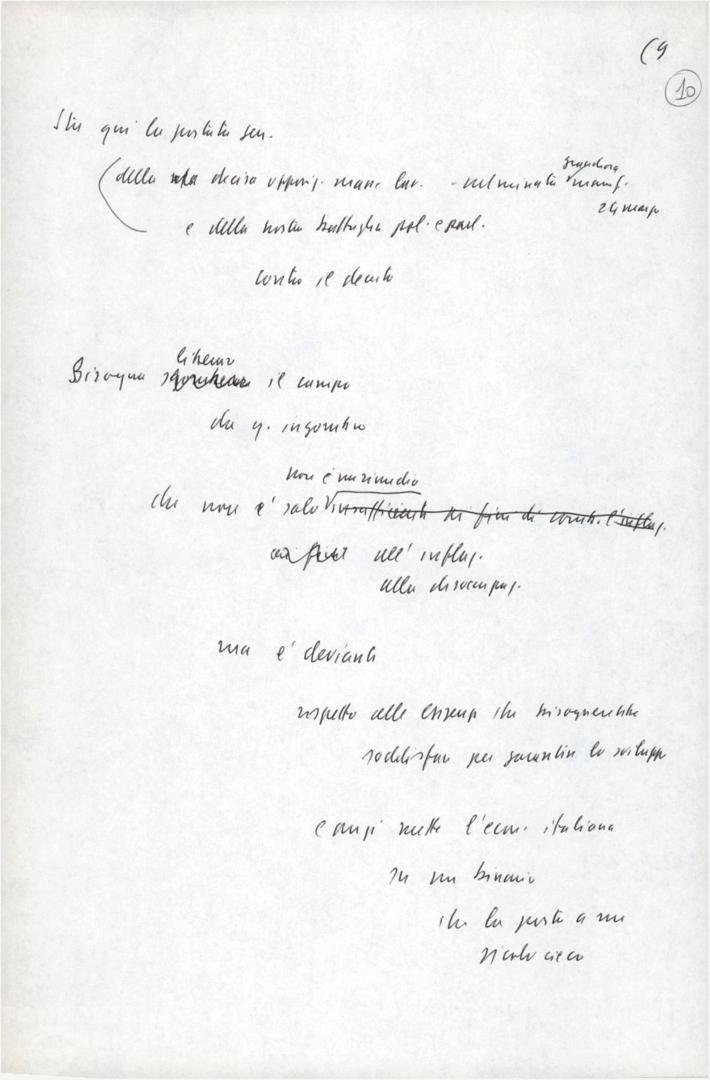 (9
10
Sta qui la portata gen.
(della decisa opposiz. masse lav. - culminata manif.
grandiosa
24 marzo
e della nostra battaglia pol. e parl.
contro il decreto
liberare
Bisogna sgomberare il campo
da q. ingombro
non è un rimedio
che non è solo insufficiente ai fini di contr. l'inflaz.
all'inflaz.
alla disoccupaz.
ma è deviante
rispetto alle esigenze che bisognerebbe
soddisfare per garantire lo sviluppo
e anzi mette l'econ. italiana
su un binario
che la porta a un
vicolo cieco